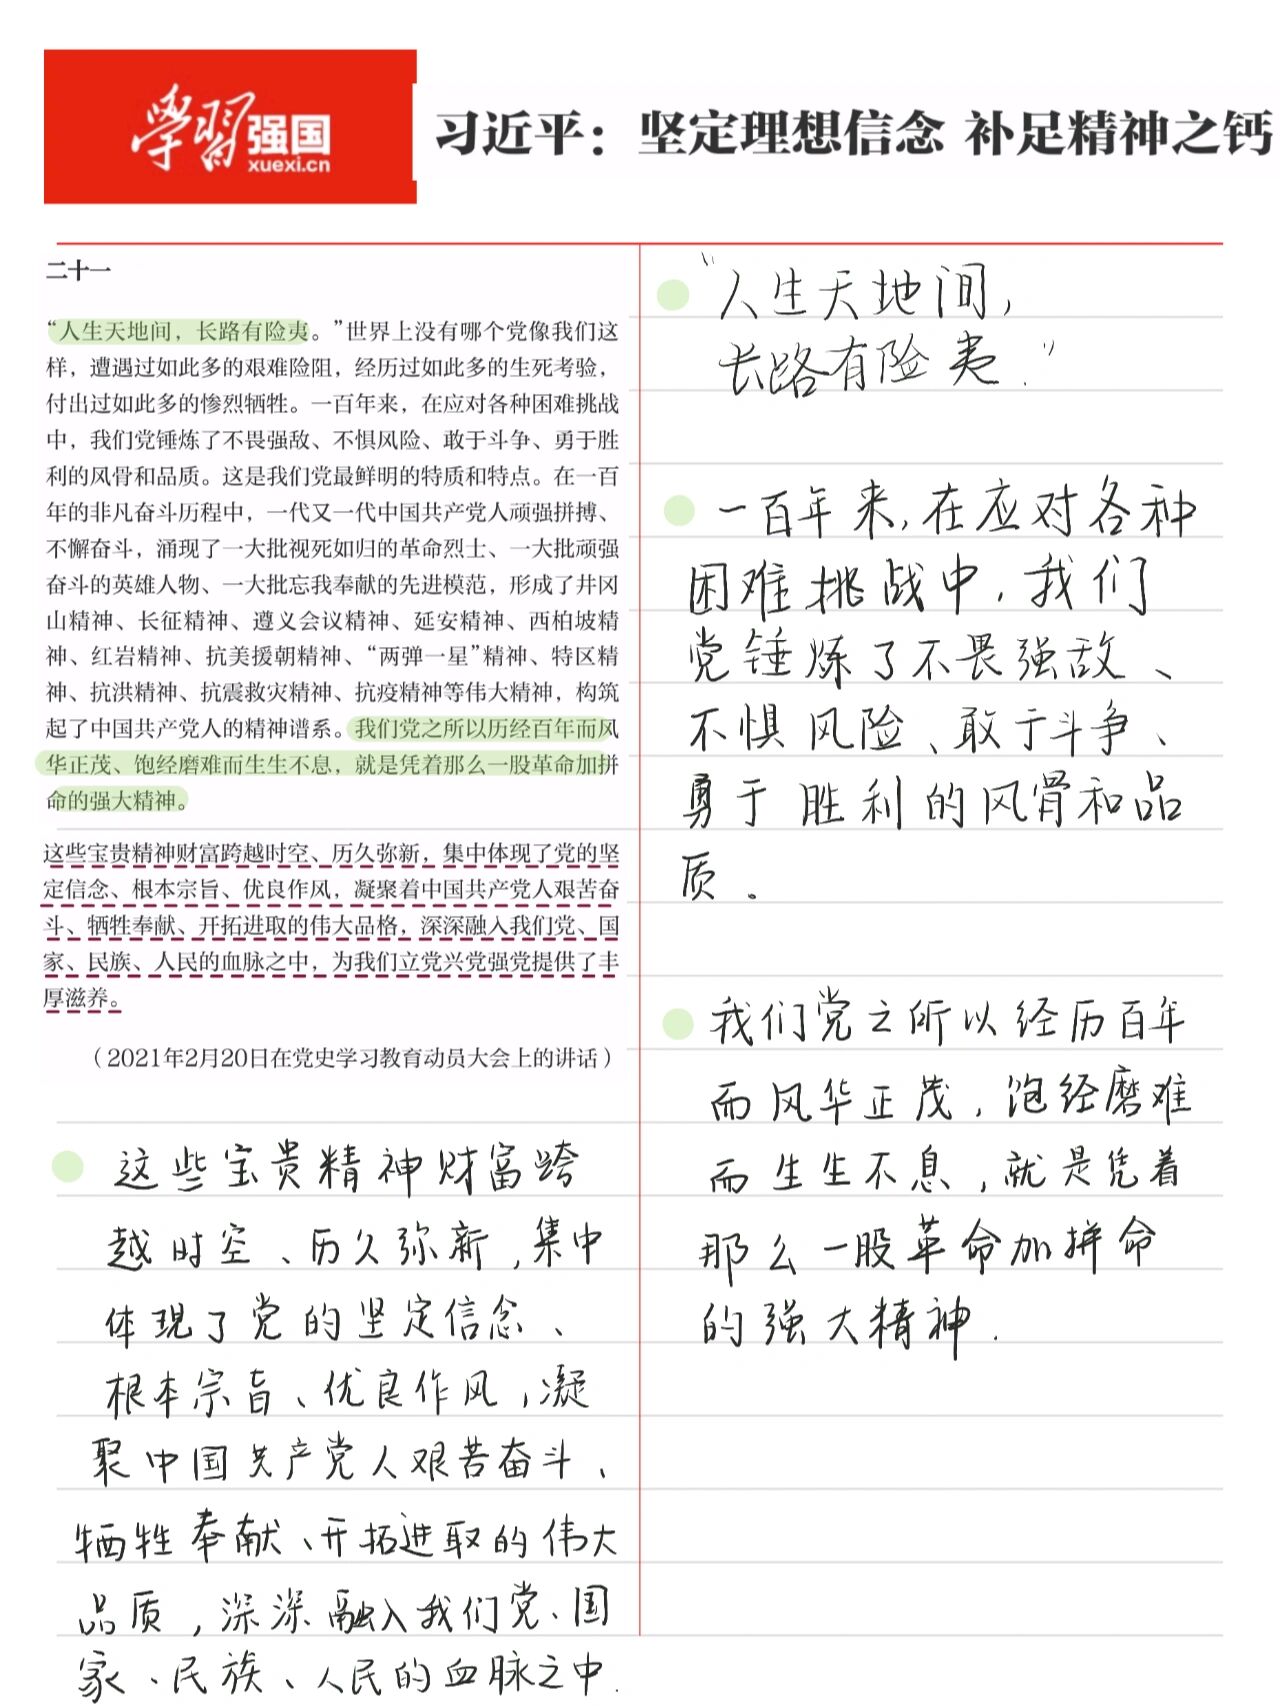 學習强国
xuexi.cn
习近平：坚定理想信念 补足精神之钙
二十一
“人生天地间，长路有险夷。”世界上没有哪个党像我们这
样，遭遇过如此多的艰难险阻，经历过如此多的生死考验，
付出过如此多的惨烈牺牲。一百年来，在应对各种困难挑战
中，我们党锤炼了不畏强敌、不惧风险、敢于斗争、勇于胜
利的风骨和品质。这是我们党最鲜明的特质和特点。在一百
年的非凡奋斗历程中，一代又一代中国共产党人顽强拼搏、
不懈奋斗，涌现了一大批视死如归的革命烈士、一大批顽强
奋斗的英雄人物、一大批忘我奉献的先进模范，形成了井冈
山精神、长征精神、遵义会议精神、延安精神、西柏坡精
神、红岩精神、抗美援朝精神、“两弹一星”精神、特区精
神、抗洪精神、抗震救灾精神、抗疫精神等伟大精神，构筑
起了中国共产党人的精神谱系。我们党之所以历经百年而风
华正茂、饱经磨难而生生不息，就是凭着那么一股革命加拼
命的强大精神。
这些宝贵精神财富跨越时空、历久弥新，集中体现了党的坚
定信念、根本宗旨、优良作风，凝聚着中国共产党人艰苦奋
斗、牺牲奉献、开拓进取的伟大品格，深深融入我们党、国
家、民族、人民的血脉之中，为我们立党兴党强党提供了丰
厚滋养。
（2021年2月20日在党史学习教育动员大会上的讲话）
这些宝贵精神财富跨
越时空、历久弥新，集中
体现了党的坚定信念、
根本宗旨、优良作风，凝
聚中国共产党人艰苦奋斗、
牺牲奉献、开拓进取的伟大
品质，深深融入我们党、国
家、民族、人民的血脉之中.
“人生天地间，
长路有险夷.”
一百年来,在应对各种
困难挑战中，我们
党锤炼了不畏强敌、
不惧风险、敢于斗争、
勇于胜利的风骨和品
质.
我们党之所以经历百年
而风华正茂，饱经磨难
而生生不息，就是凭着
那么一股革命加拼命
的强大精神.